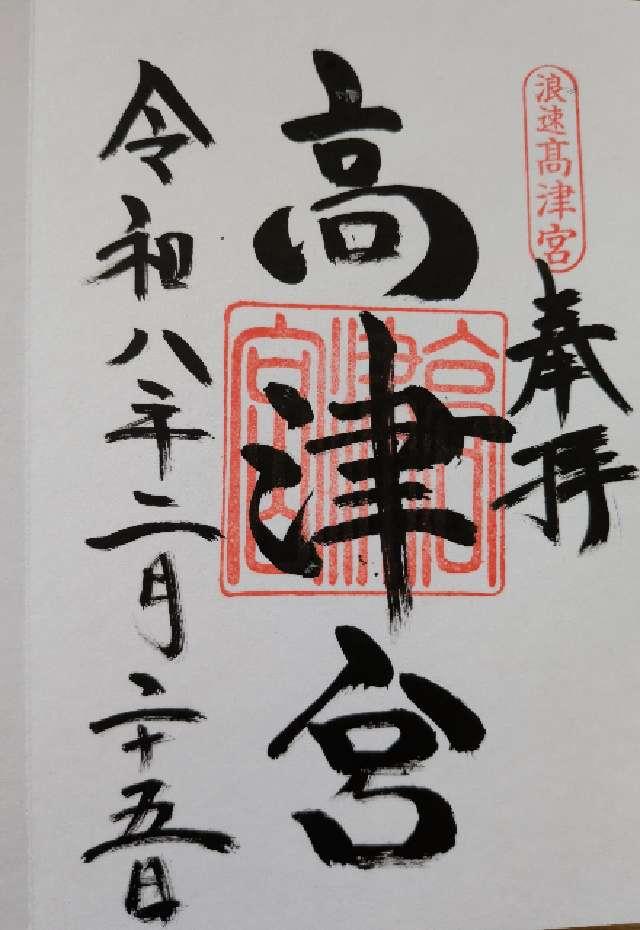 浪速高津宮
奉拝
高津宮
高津宮
令和八年二月二十五日